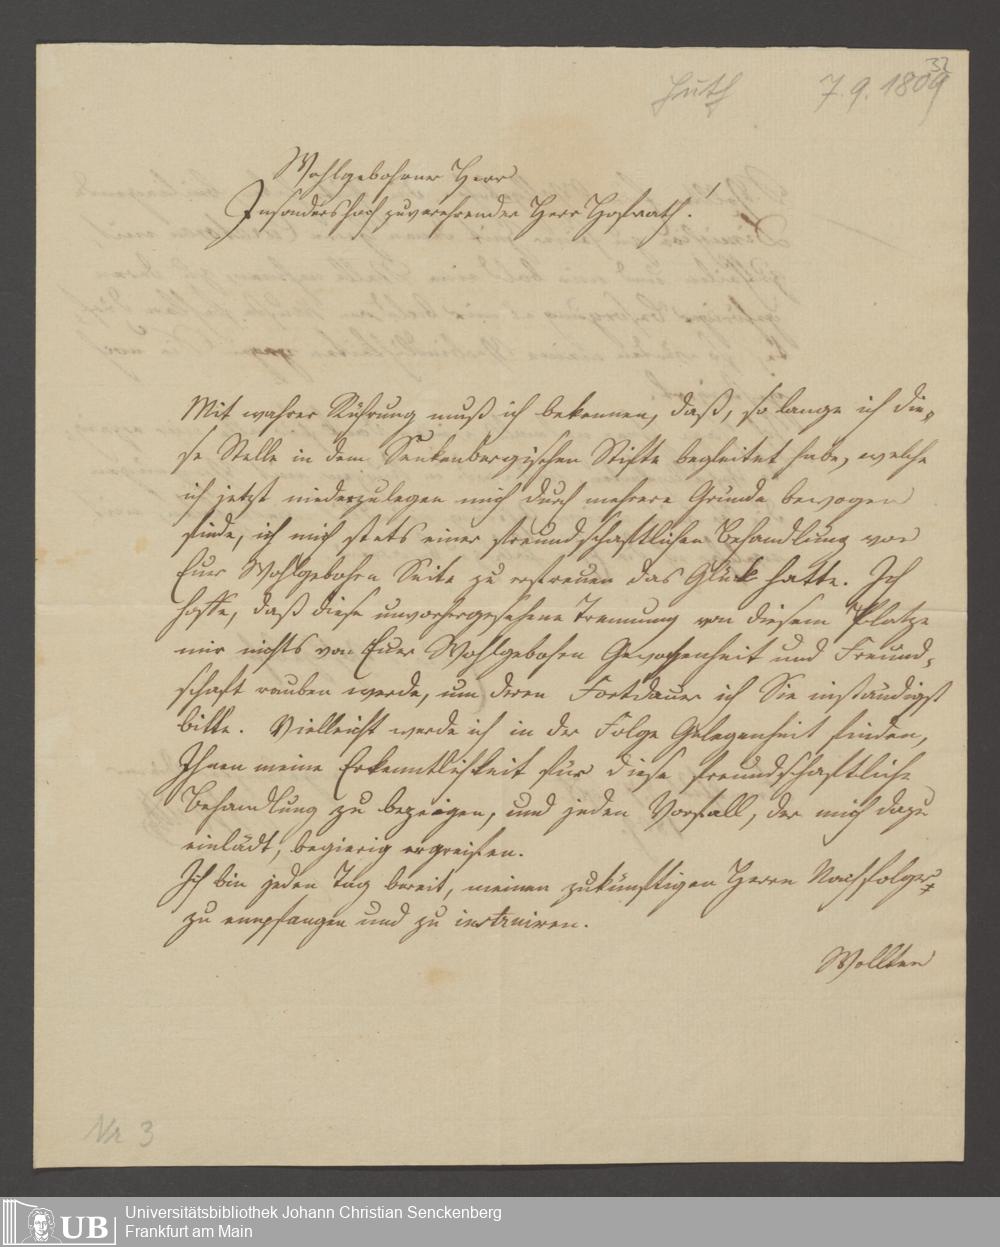 32
Huth 7.9.1809
Wohlgebohrner Herr
Insonders hoch zuverehrender Herr Hofrath!
Mit wahrer Rührung muß ich bekennen, daß, so lange ich die-
se Stelle in dem Senkenbergischen Stifte begleitet habe, welche
ich jetzt niederzulegen mich durch mehrere Gründe bewogen
finde, ich mich stets einer freundschaftlichen Behandlung von
Euer Wohlgebohrn Seite zu erfreuen das Glück hatte. Ich
hoffe, daß diese unvorhergesehene Trennung von diesem Platze
mir nichts von Euer Wohlgebohrn Gewogenheit und Freund-
schaft rauben werde, um deren Fortdauer ich Sie inständigst
bitte. Vielleicht werde ich in der Folge Gelegenheit finden,
Ihnen meine Erkenntlichkeit für diese freundschaftliche
Behandlung zu bezeigen, und jeden Vorfall, der mich dazu
einlädt, begierig ergreifen.
Ich bin jeden Tag bereit, meinen zukünftigen Herrn Nachfolger
zu empfangen und zu instruiren.
Wollten
Nr 3
UB Universitätsbibliothek Johann Christian Senckenberg
Frankfurt am Main